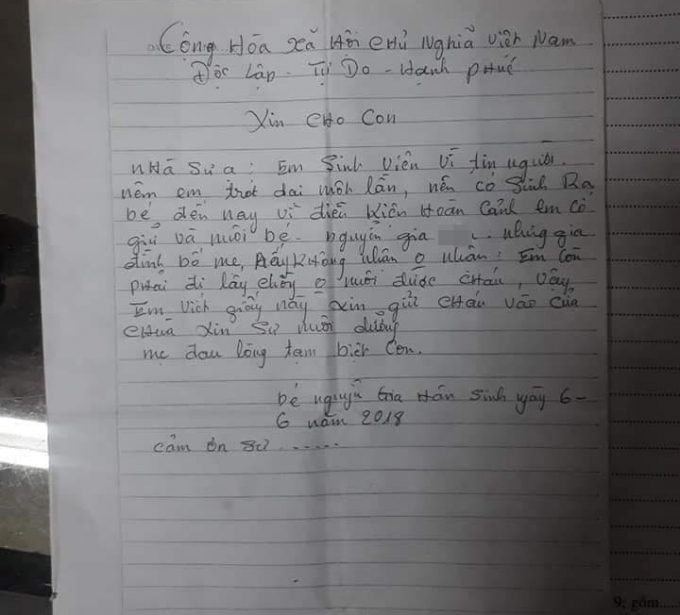 Cộng Hòa Xã Hội Chủ Nghĩa Việt Nam
Độc Lập - Tự Do - Hạnh Phúc
Xin Cho Con
Nhà Sư ạ: Em Sinh Viên Vì tin người.
nêm em trót dại một lần, nên có Sinh Ra
bé đến nay vì điều kiên Hoàn Cảnh em có
giữ và nuôi bé. nguyễn gia nhưng gia
đình bố mẹ, Ấy không nhân o nhân: Em còn
phải đi lấy chồng o nuôi được cháu, vậy
Em viết giấy này xin gửi cháu vào cửa
chùa xin sư nuôi dưỡng
mẹ đau lòng tạm biệt con.
bé nguyễn Gia Hân Sinh ngày 6-
6 năm 2018
cảm ơn sư ......
9; gồm....